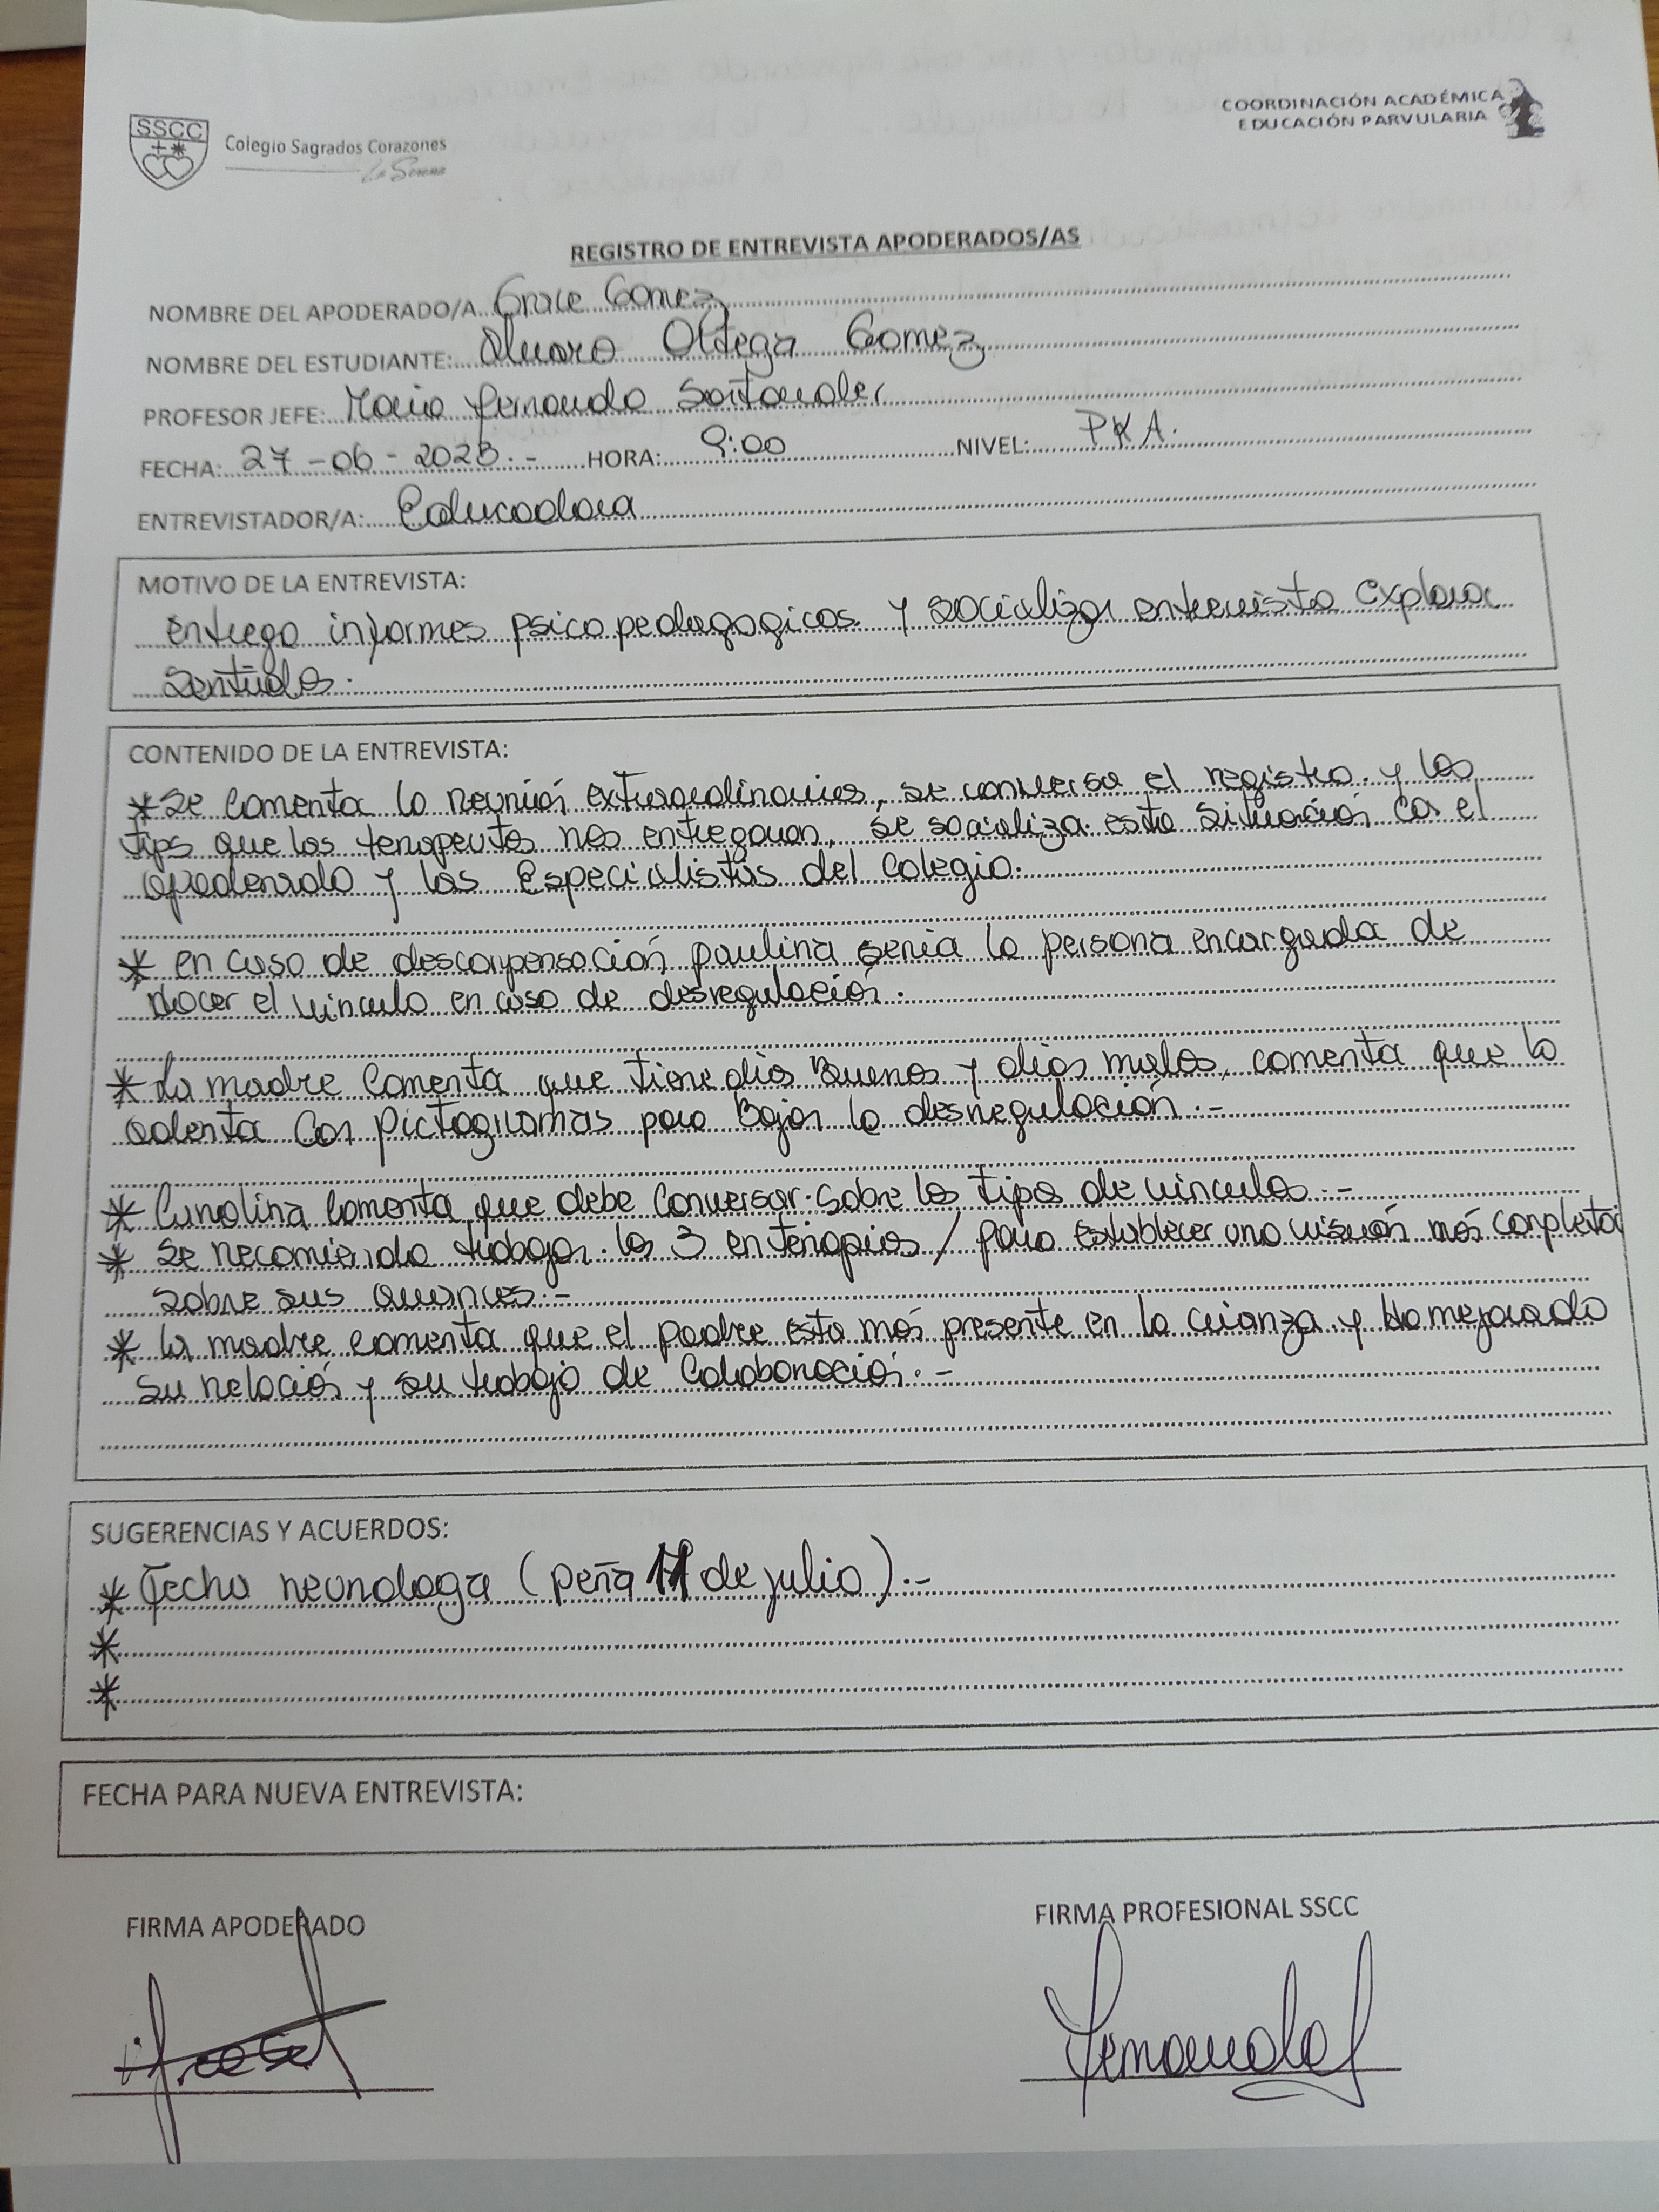 SSCC
Colegio Sagrados Corazones
La Serena
COORDINACIÓN ACADÉMICA
EDUCACIÓN PARVULARIA
REGISTRO DE ENTREVISTA APODERADOS/AS
NOMBRE DEL APODERADO/A Grace Gomez
NOMBRE DEL ESTUDIANTE: Alvaro Ortega Gomez
PROFESOR JEFE: Maria Fernanda Santander
FECHA: 27-06-2023.- HORA: 9:00 NIVEL: PKA.
ENTREVISTADOR/A: Educadora
MOTIVO DE LA ENTREVISTA:
entrego informes psicopedagogicos y socializar entrevista explora
sentidos.
CONTENIDO DE LA ENTREVISTA:
* Se comenta la reunión extraordinaria, se conversa el registro y los
tips que las terapeutas nos entregaron, se socializa esta situación con el
apoderado y las Especialistas del colegio.
* en caso de descompensación paulina seria la persona encargada de
Hacer el vinculo en caso de desregulación.
* La madre comenta que tiene dias Buenos y dias malos, comenta que lo
orienta Con Pictogramas para Bajar la desregulación.-
* Carolina comenta que debe conversar sobre los tipos de vinculos.-
* se recomienda trabajar los 3 en terapias / para establecer una visión más completa
sobre sus avances.-
* la madre comenta que el padre esta más presente en la crianza y Ha mejorado
su relación y su trabajo de Colaboración.-
SUGERENCIAS Y ACUERDOS:
* Fecha neurologa (peña 11 de julio).-
*
*
FECHA PARA NUEVA ENTREVISTA:
FIRMA APODERADO
FIRMA PROFESIONAL SSCC
Fernanda S